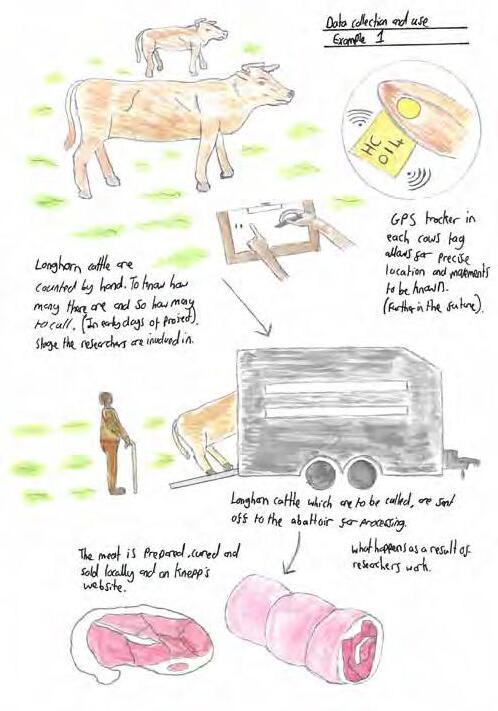 Data collection and use
Example 1
HC
014
GPS tracker in
each cows tag
allows for precise
location and movements
to be known.
(further in the future).
Longhorn cattle are
counted by hand. To know how
many there are and so how many
to cull. (In early days of project).
stage the researchers are involved in.
Longhorn cattle which are to be culled, are sent
off to the abattoir for processing.
The meat is prepared, cured and
sold locally and on Knepp's
website.
what happens as a result of
researchers work.